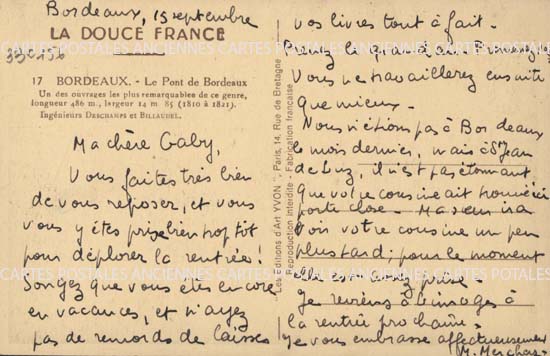 Bordeaux, 15 septembre
LA DOUCE FRANCE
17 BORDEAUX. - Le Pont de Bordeaux
Un des ouvrages les plus remarquables de ce genre,
longueur 486 m., largeur 14 m 85 (1810 à 1821).
Ingénieurs DESCHAMPS et BILLAUDEL.
Ma chère Gaby,
Vous faites très bien
de vous reposer, et vous
vous y êtes prise bien trop tôt
pour déplorer la rentrée !
Songez que vous êtes encore
en vacances, et n'ayez
pas de remords de laisser
"Les Editions d'Art YVON", Paris, 14, Rue de Bretagne
Reproduction interdite - Fabrication française
vos livres tout à fait.
Prenez le grand air
Vous ne travaillerez ensuite
que mieux.
Nous n'étions pas à Bordeaux
le mois dernier, mais à St Jean
de Luz, il n'est pas étonnant
que votre cousine ait trouvé
porte close. Ma soeur ira
voir votre cousine un peu
plus tard ; pour le moment
elle est assez prise.
Je reviens à Limoges à
la rentrée prochaine.
Je vous embrasse affectueusement
CARTES POSTALES ANCIENNES CARTES POSTALES ANCIENNES